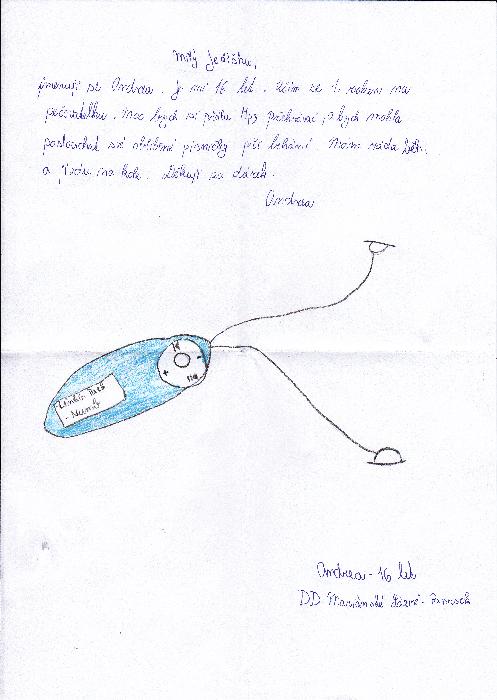 Milý Ježíšku,
jmenuji se Andrea. Je mi 16 let. Učím se 1. rokem na
pečovatelku. Moc bych si přála Mp3 přehrávač, abych mohla
poslouchat své oblíbené písničky při běhání. Mám ráda běh
a jízdu na kole. Děkuji za dárek.
Andrea
Linkin Park
- Numb
Andrea - 16 let
DD Mariánské Lázně -